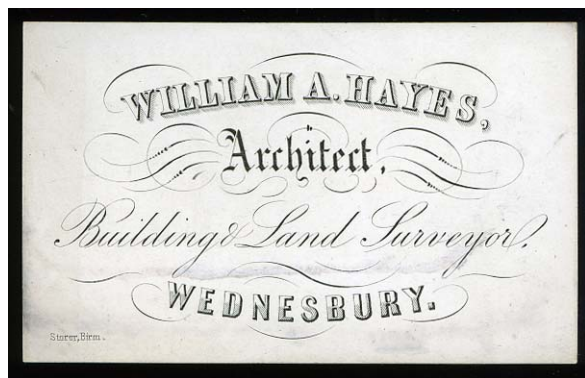 WILLIAM A. HAYES,
Architect,
Building & Land Surveyor.
WEDNESBURY.
Storer, Birm.